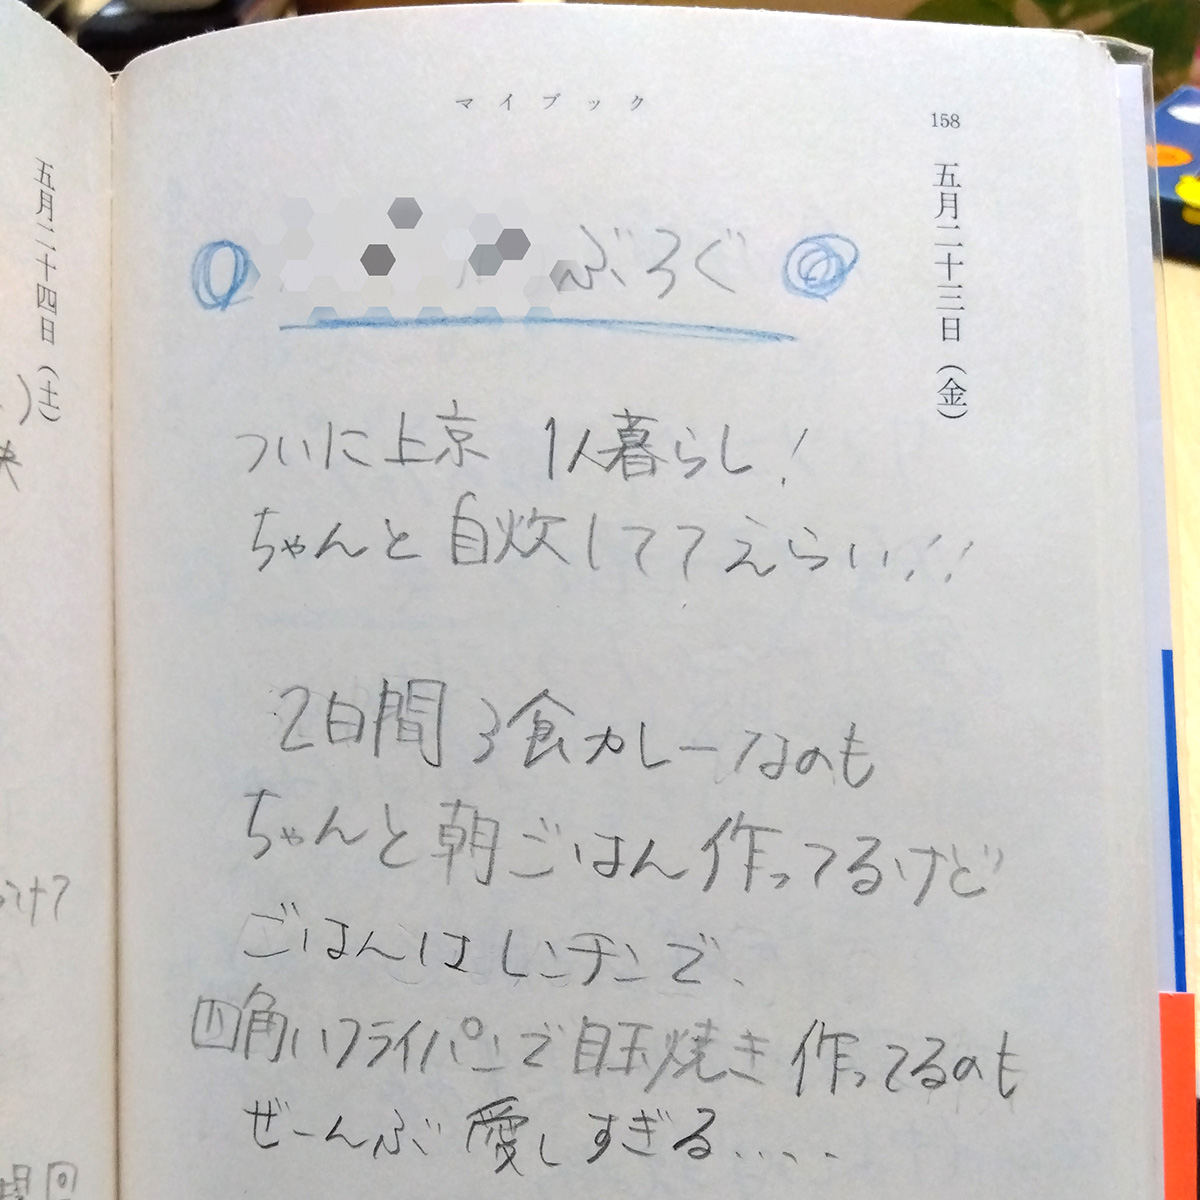 マイブック
158
五月二十三日（金）
ぶろぐ
ついに上京 1人暮らし！
ちゃんと自炊しててえらい！！
2日間3食カレーなのも
ちゃんと朝ごはん作ってるけど
ごはんはレンチンで、
四角いフライパンで目玉焼き作ってるのも
ぜーんぶ愛しすぎる....
五月二十四日（土）